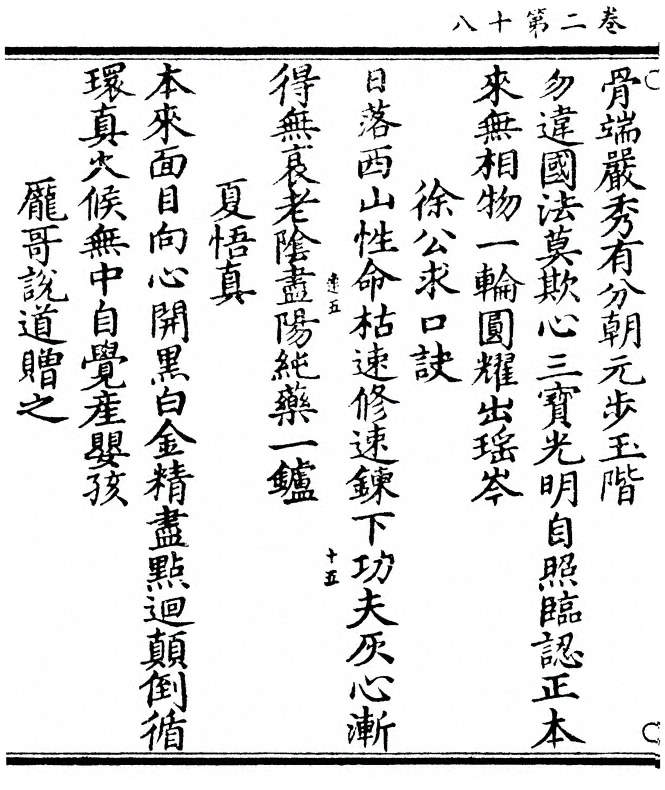 卷二第十八
骨端嚴秀有分朝元步玉階
勿違國法莫欺心三寶光明自照臨認正本
來無相物一輪圓耀出瑶岑
徐公求口訣
日落西山性命枯速修速鍊下功夫灰心漸
遠五
十五
得無衰老陰盡陽純藥一鑪
夏悟真
本來面目向心開黑白金精盡點迴顛倒循
環真火候無中自覺産嬰孩
龐哥說道贈之